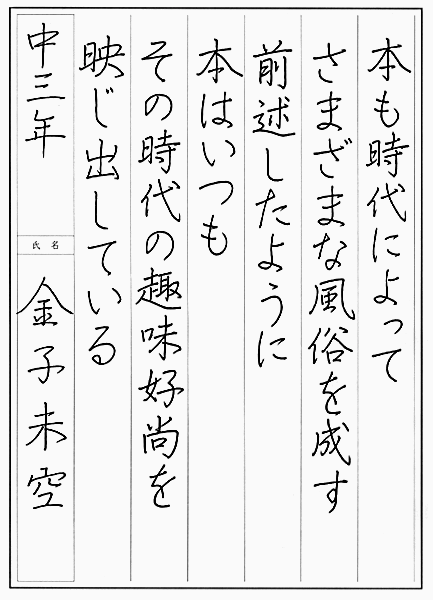 本も時代によって
さまざまな風俗を成す
前述したように
本はいつも
その時代の趣味好尚を
映じ出している
中三年
氏名
金子未空